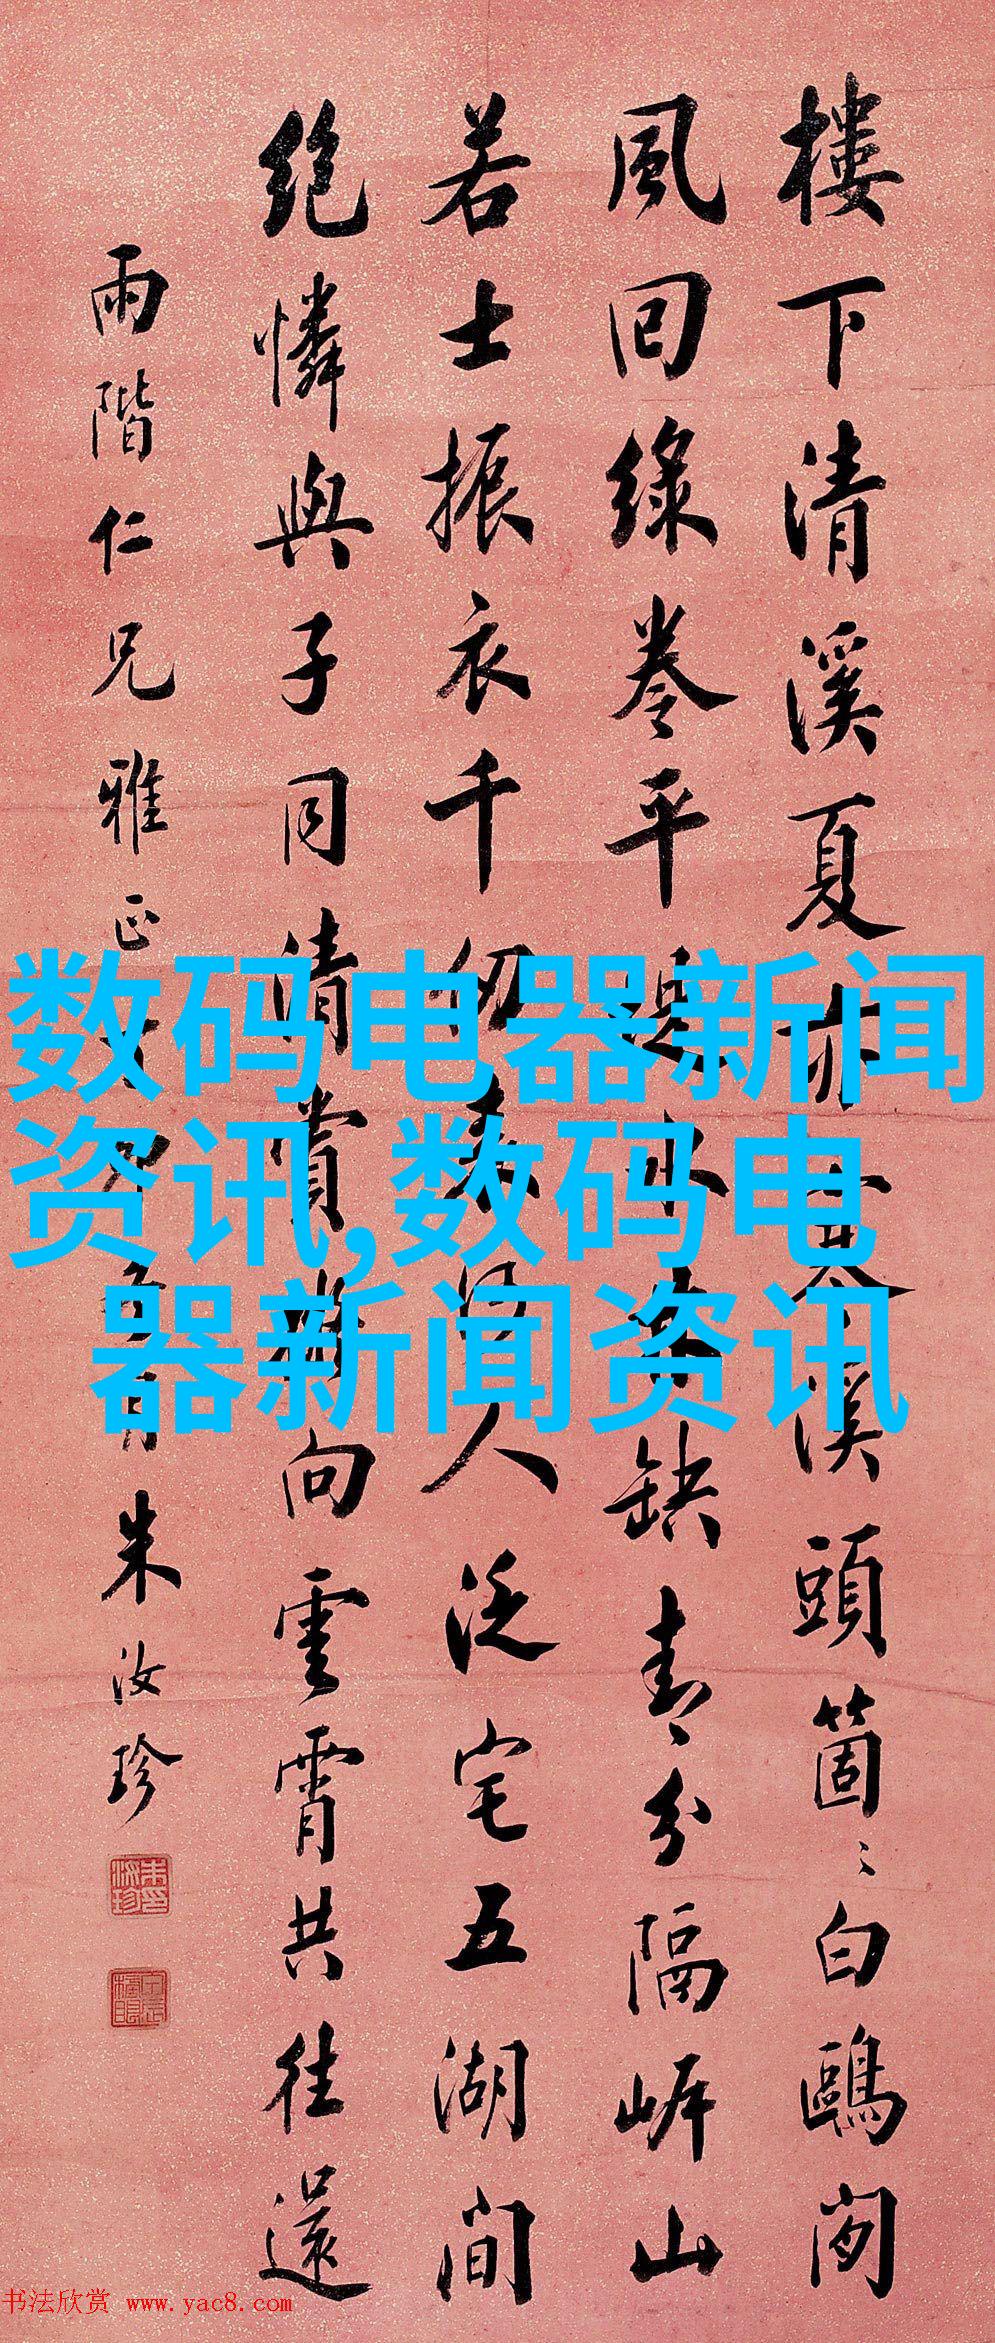 樓下清溪夏亦寒溪頭箇〻白鷗閑
風回綠卷平堤水缺青〻分隔岸山
若士振衣千仞表人泛宅五湖間
絶憐與子同清賞向雲霄共往還
雨階仁兄雅正
朱汝珍
数码电器新闻
资讯,数码电
器新闻资讯
书法欣赏 www.yac8.com